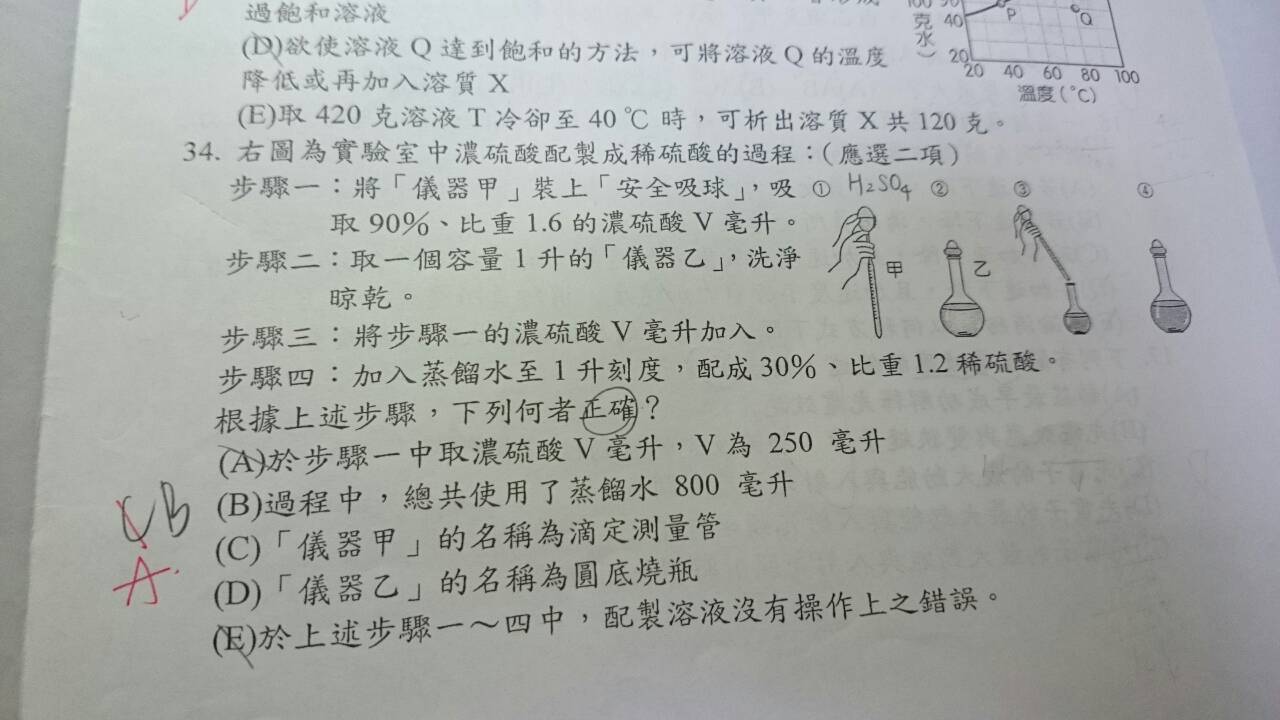 過飽和溶液
(D)欲使溶液 Q 達到飽和的方法,可將溶液 Q 的溫度
降低或再加入溶質 X
(E)取 420 克溶液 T 冷卻至 40 ℃ 時,可析出溶質 X 共 120 克。
克水)
40
20
P
Q
20 40 60 80 100
溫度(℃)
34. 右圖為實驗室中濃硫酸配製成稀硫酸的過程:(應選二項)
步驟一:將「儀器甲」裝上「安全吸球」,吸
取 90%、比重 1.6 的濃硫酸 V 毫升。
步驟二:取一個容量 1 升的「儀器乙」,洗淨
晾乾。
① H2SO4 ② ③ ④
甲
乙
步驟三:將步驟一的濃硫酸 V 毫升加入。
步驟四:加入蒸餾水至 1 升刻度,配成 30%、比重 1.2 稀硫酸。
根據上述步驟,下列何者正確?
(A)於步驟一中取濃硫酸 V 毫升,V 為 250 毫升
(B)過程中,總共使用了蒸餾水 800 毫升
(C)「儀器甲」的名稱為滴定測量管
(D)「儀器乙」的名稱為圓底燒瓶
(E)於上述步驟一~四中,配製溶液沒有操作上之錯誤。
B
A